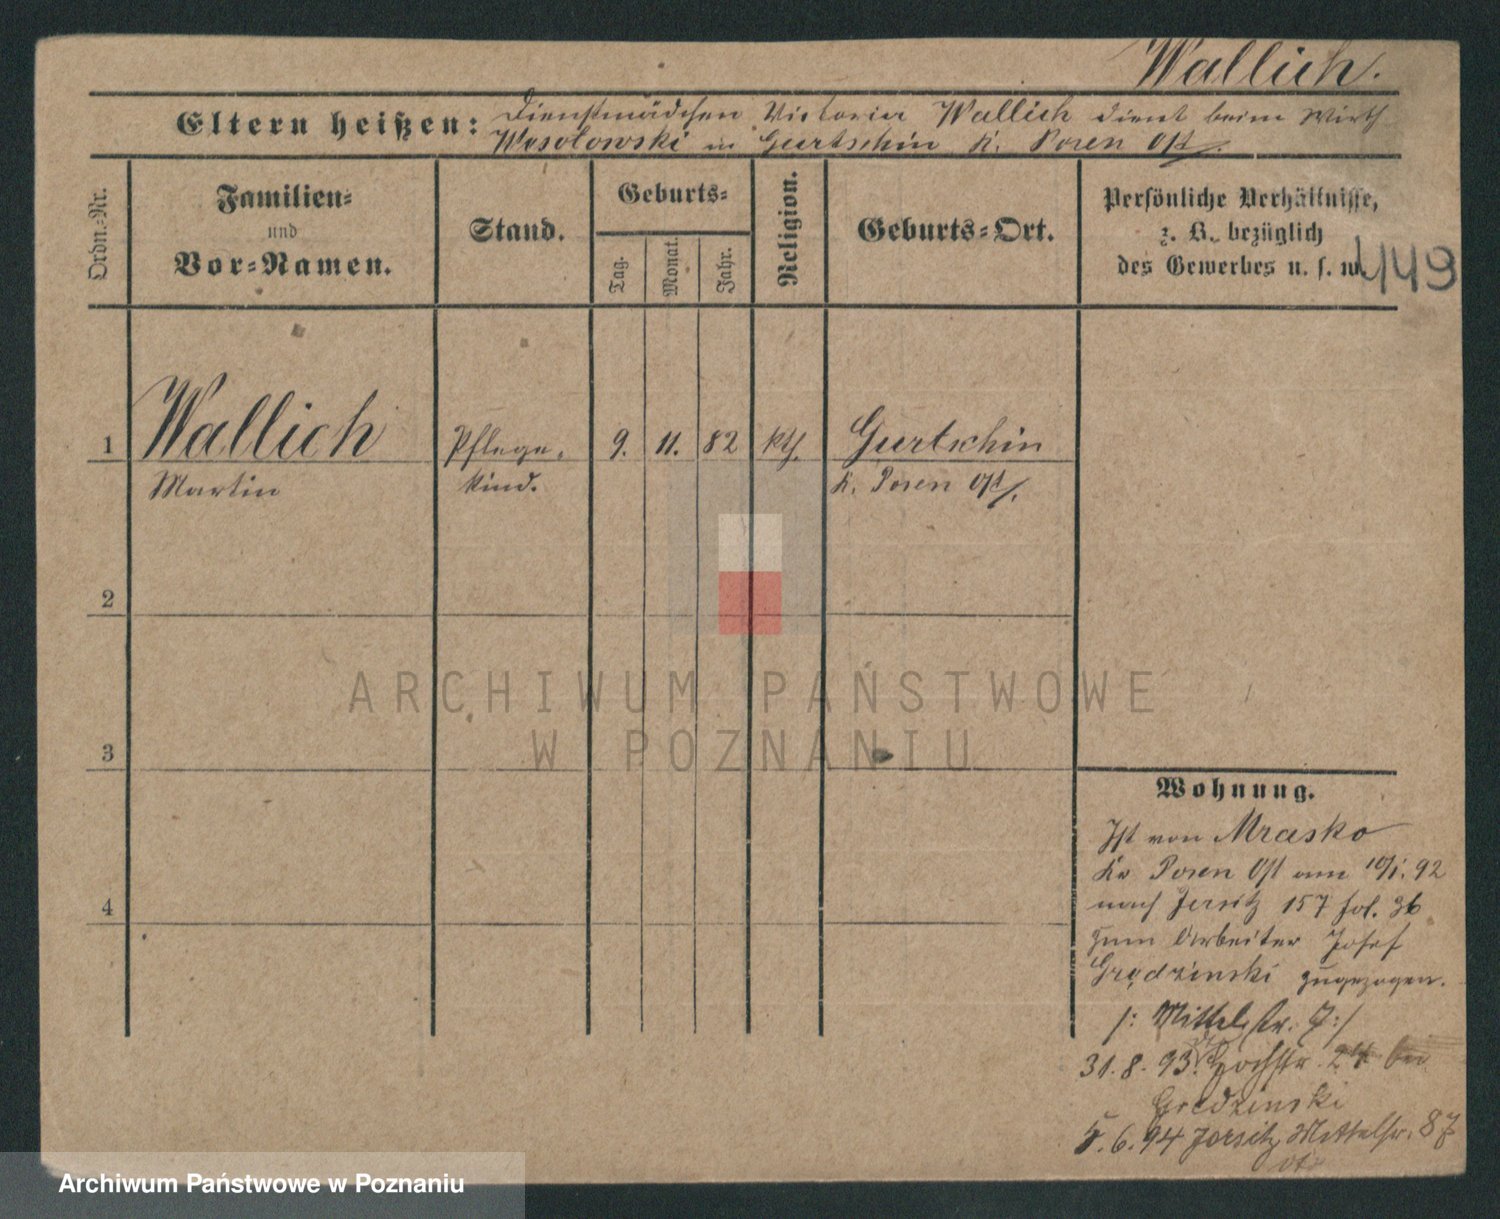 Wallich.
Eltern heißen: Dienstmädchen Victoria Wallich dient beim Wirth
Wesolowski in Gurtschin K. Posen Ost.
Ordn.-Nr.
Familien-
und
Vor-Namen.
Stand.
Geburts-
Tag.
Monat.
Jahr.
Religion.
Geburts-Ort.
Persönliche Verhältnisse,
z. B. bezüglich
des Gewerbes u. s. w.
449
1 Wallich Pflege- 9. 11. 82 kth. Gurtschin
Martin kind. K. Posen Ost.
2
3
4
Wohnung.
Ist von Mrasko
Kr Posen Ost am 10/1. 92
nach Jersitz 157 fol. 36
zum Arbeiter Josef
Grądzinski zugezogen.
/: Mittelstr. 7 :/
31. 8. 93. Hochstr. 24 bei
Gredzinski
5. 6. 94 Jersitz Mittelstr. 87
ARCHIWUM PAŃSTWOWE
W POZNANIU
Archiwum Państwowe w Poznaniu